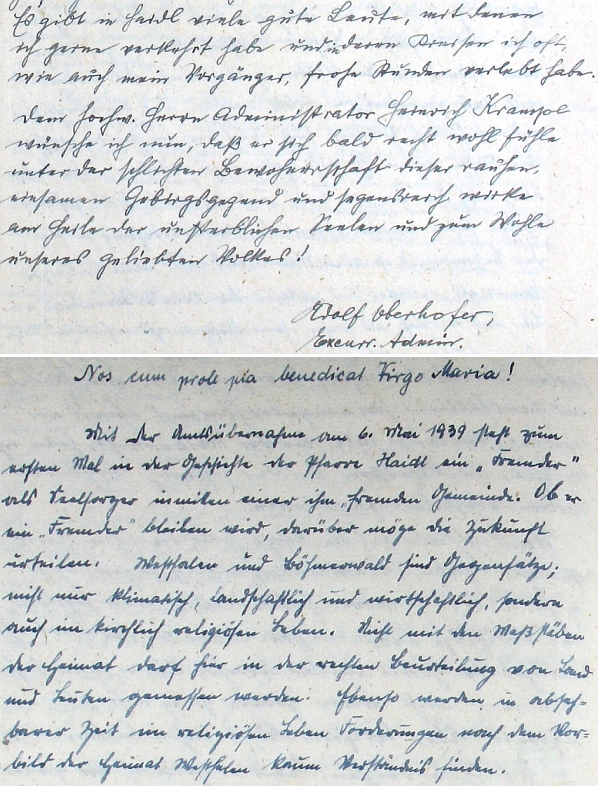 Es gibt in Haidl viele gute Leute, mit denen
ich gerne verkehrt habe und in deren Kreisen ich oft,
wie auch mein Vorgänger, frohe Stunden verlebt habe.
Dem hochw. Herrn Administrator Heinrich Krampe
wünsche ich nun, daß er sich bald recht wohl fühle
unter der schlichten Bewohnerschaft dieser rauhen,
einsamen Gebirgsgegend und segensreich wirke
am Heile der unsterblichen Seelen und zum Wohle
unseres geliebten Volkes!
Adolf Oberhofer,
Excurr. Admin.
Nos cum prole pia benedicat Virgo Maria!
Mit der Amtsübernahme am 6. Mai 1939 steht zum
ersten Mal in der Geschichte der Pfarre Haidl ein „Fremder"
als Seelsorger inmitten einer ihm „fremden Gemeinde. Ob er
ein „Fremder" bleiben wird, darüber möge die Zukunft
urteilen. Westfalen und Böhmerwald sind Gegensätze;
nicht nur klimatisch, landschaftlich und wirtschaftlich, sondern
auch im kirchlich religiösen Leben. Nicht mit den Maßstäben
der Heimat darf hier in der rechten Beurteilung von Land
und Leuten gemessen werden. Ebenso werden in abseh=
barer Zeit im religiösen Leben Forderungen nach dem Vor=
bild der Heimat Westfalen kaum Verständnis finden.